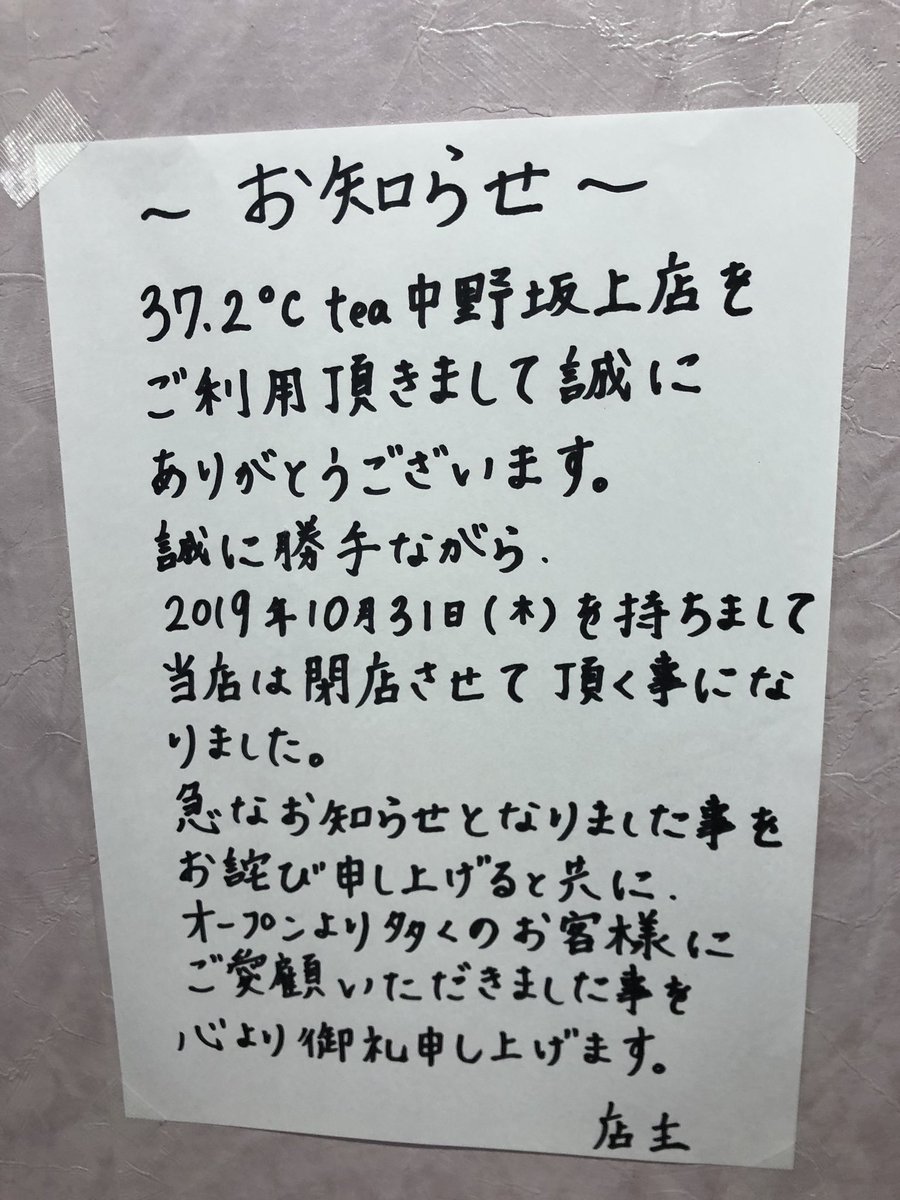 ～ お知らせ ～
37.2℃ tea 中野坂上店を
ご利用頂きまして誠に
ありがとうございます。
誠に勝手ながら、
2019年10月31日(木)を持ちまして
当店は閉店させて頂く事にな
りました。
急なお知らせとなりました事を
お詫び申し上げると共に、
オープンより多くのお客様に
ご愛顧いただきました事を
心より御礼申し上げます。
店主